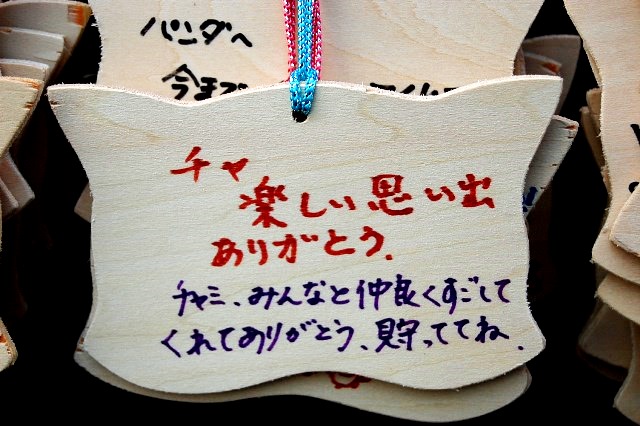 パンダへ
今まで
チャ
楽しい思い出
ありがとう.
チャミ、みんなと仲良くすごして
くれてありがとう、貯っててね.